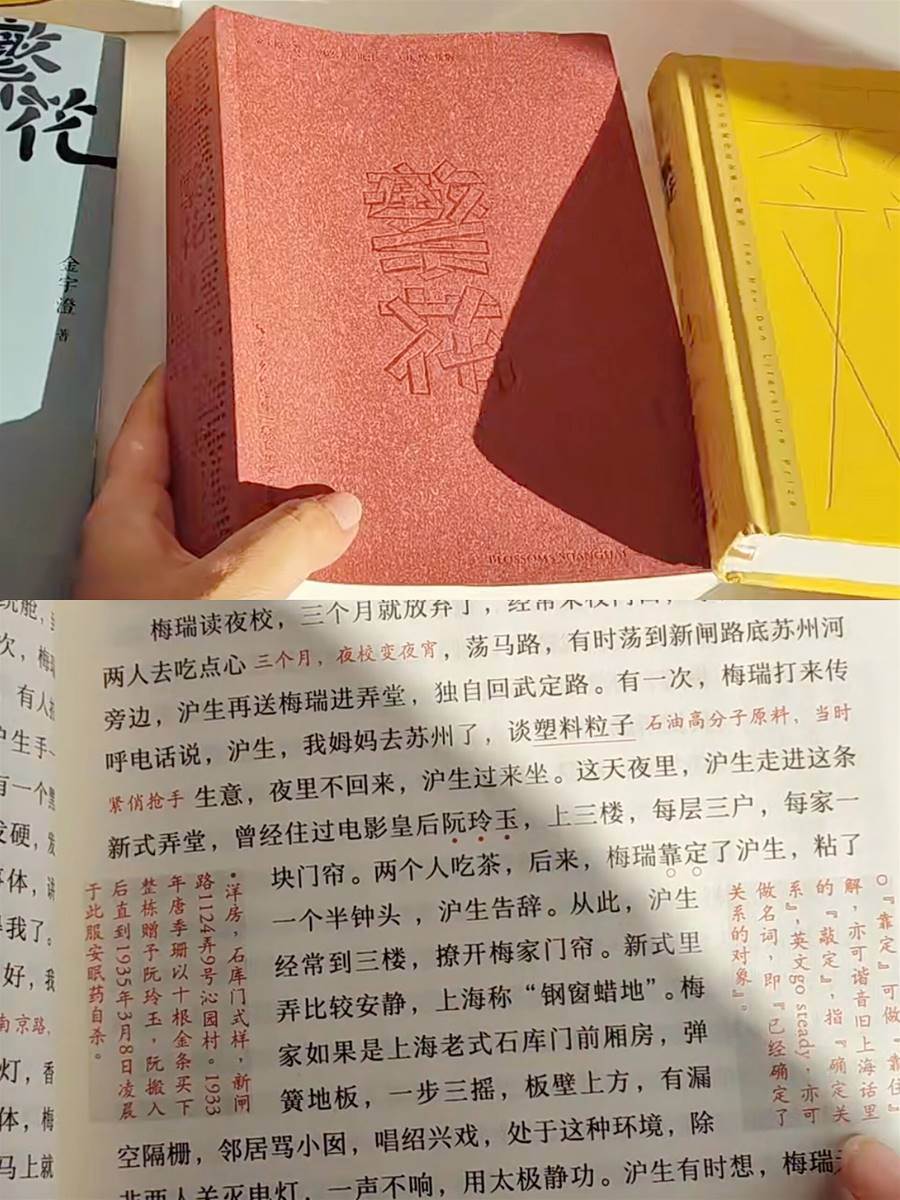 繁花
金宇澄 著
繁花
繁花
BLOSSOMS SHANGHAI
Mao Dun Literature Prize
梅瑞读夜校，三个月就放弃了，经常来校门口，
两人去吃点心 三个月，夜校变夜宵，荡马路，有时荡到新闸路底苏州河
旁边，沪生再送梅瑞进弄堂，独自回武定路。有一次，梅瑞打来传
呼电话说，沪生，我姆妈去苏州了，谈塑料粒子 石油高分子原料，当时
紧俏抢手 生意，夜里不回来，沪生过来坐。这天夜里，沪生走进这条
新式弄堂，曾经住过电影皇后阮玲玉，上三楼，每层三户，每家一
块门帘。两个人吃茶，后来，梅瑞靠定了沪生，粘了
一个半钟头，沪生告辞。从此，沪生
经常到三楼，撩开梅家门帘。新式里
弄比较安静，上海称“钢窗蜡地”。梅
家如果是上海老式石库门前厢房，弹
簧地板，一步三摇，板壁上方，有漏
空隔栅，邻居骂小囡，唱绍兴戏，处于这种环境，除
非两人关灭电灯，一声不响，用太极静功。沪生有时想，梅瑞
•洋房，石库门式样，新闸
路1124弄9号沁园村。1933
年唐季珊以十根金条买下
整栋赠予阮玲玉，阮搬入
后直到1935年3月8日凌晨
于此服安眠药自杀。
○『靠定』可做『靠住』
解，亦可谐音旧上海话里
的『敲定』，指『确定关
系』，英文go steady，亦可
做名词，即『已经确定了
关系的对象』。
次，梅
有人
沪生手一
有一个黑
发硬，
事体，讲
寻我了。
好，我
南京路，
灯，香
体，梅
马上就